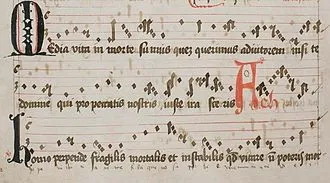 Media vita in morte sumus quez querimus adiutorem nisi te
domine qui pro peccatis nostris iuste irasceris Ach
homo perpende fragilis mortalis et instabilis qd vitare n poteris mor